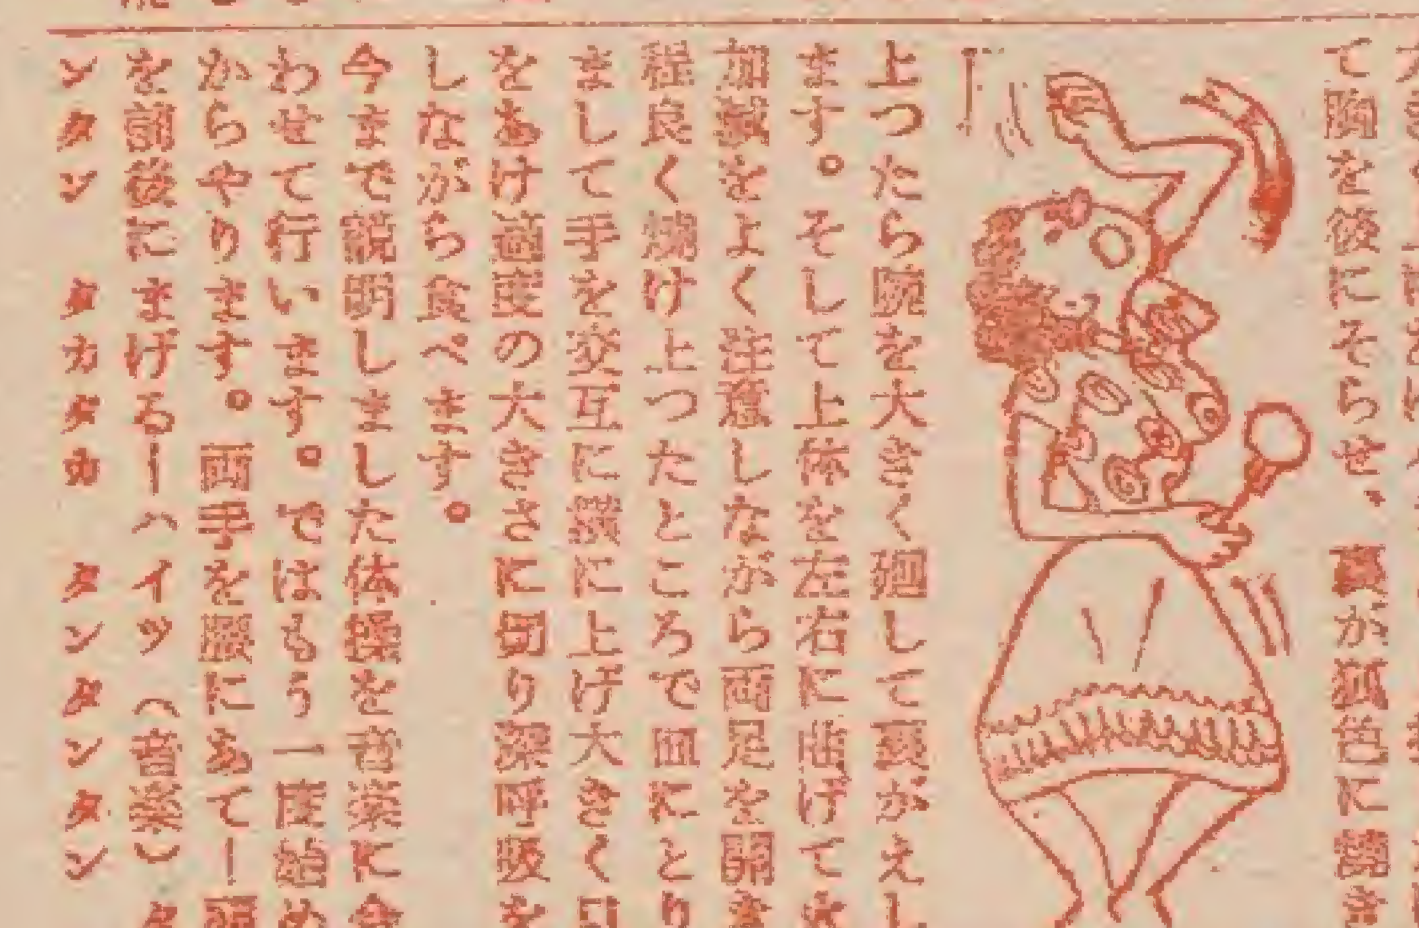 て胸を後にそらせ、裏が狐色に焼き
上つたら腕を大きく廻して裏がえし
ます。そして上体を左右に曲げて火
加減をよく注意しながら両足を開き
程良く焼け上つたところで皿にとり
まして手を交互に横に上げ大きく口
をあけ適度の大きさに切り深呼吸を
しながら食べます。
今まで説明しました体操を音楽に合
わせて行います。ではもう一度始め
からやります。両手を腰にあてー頭
を前後にまげるーハイツ(音楽)タ
ンタン タカタカ タンタンタン